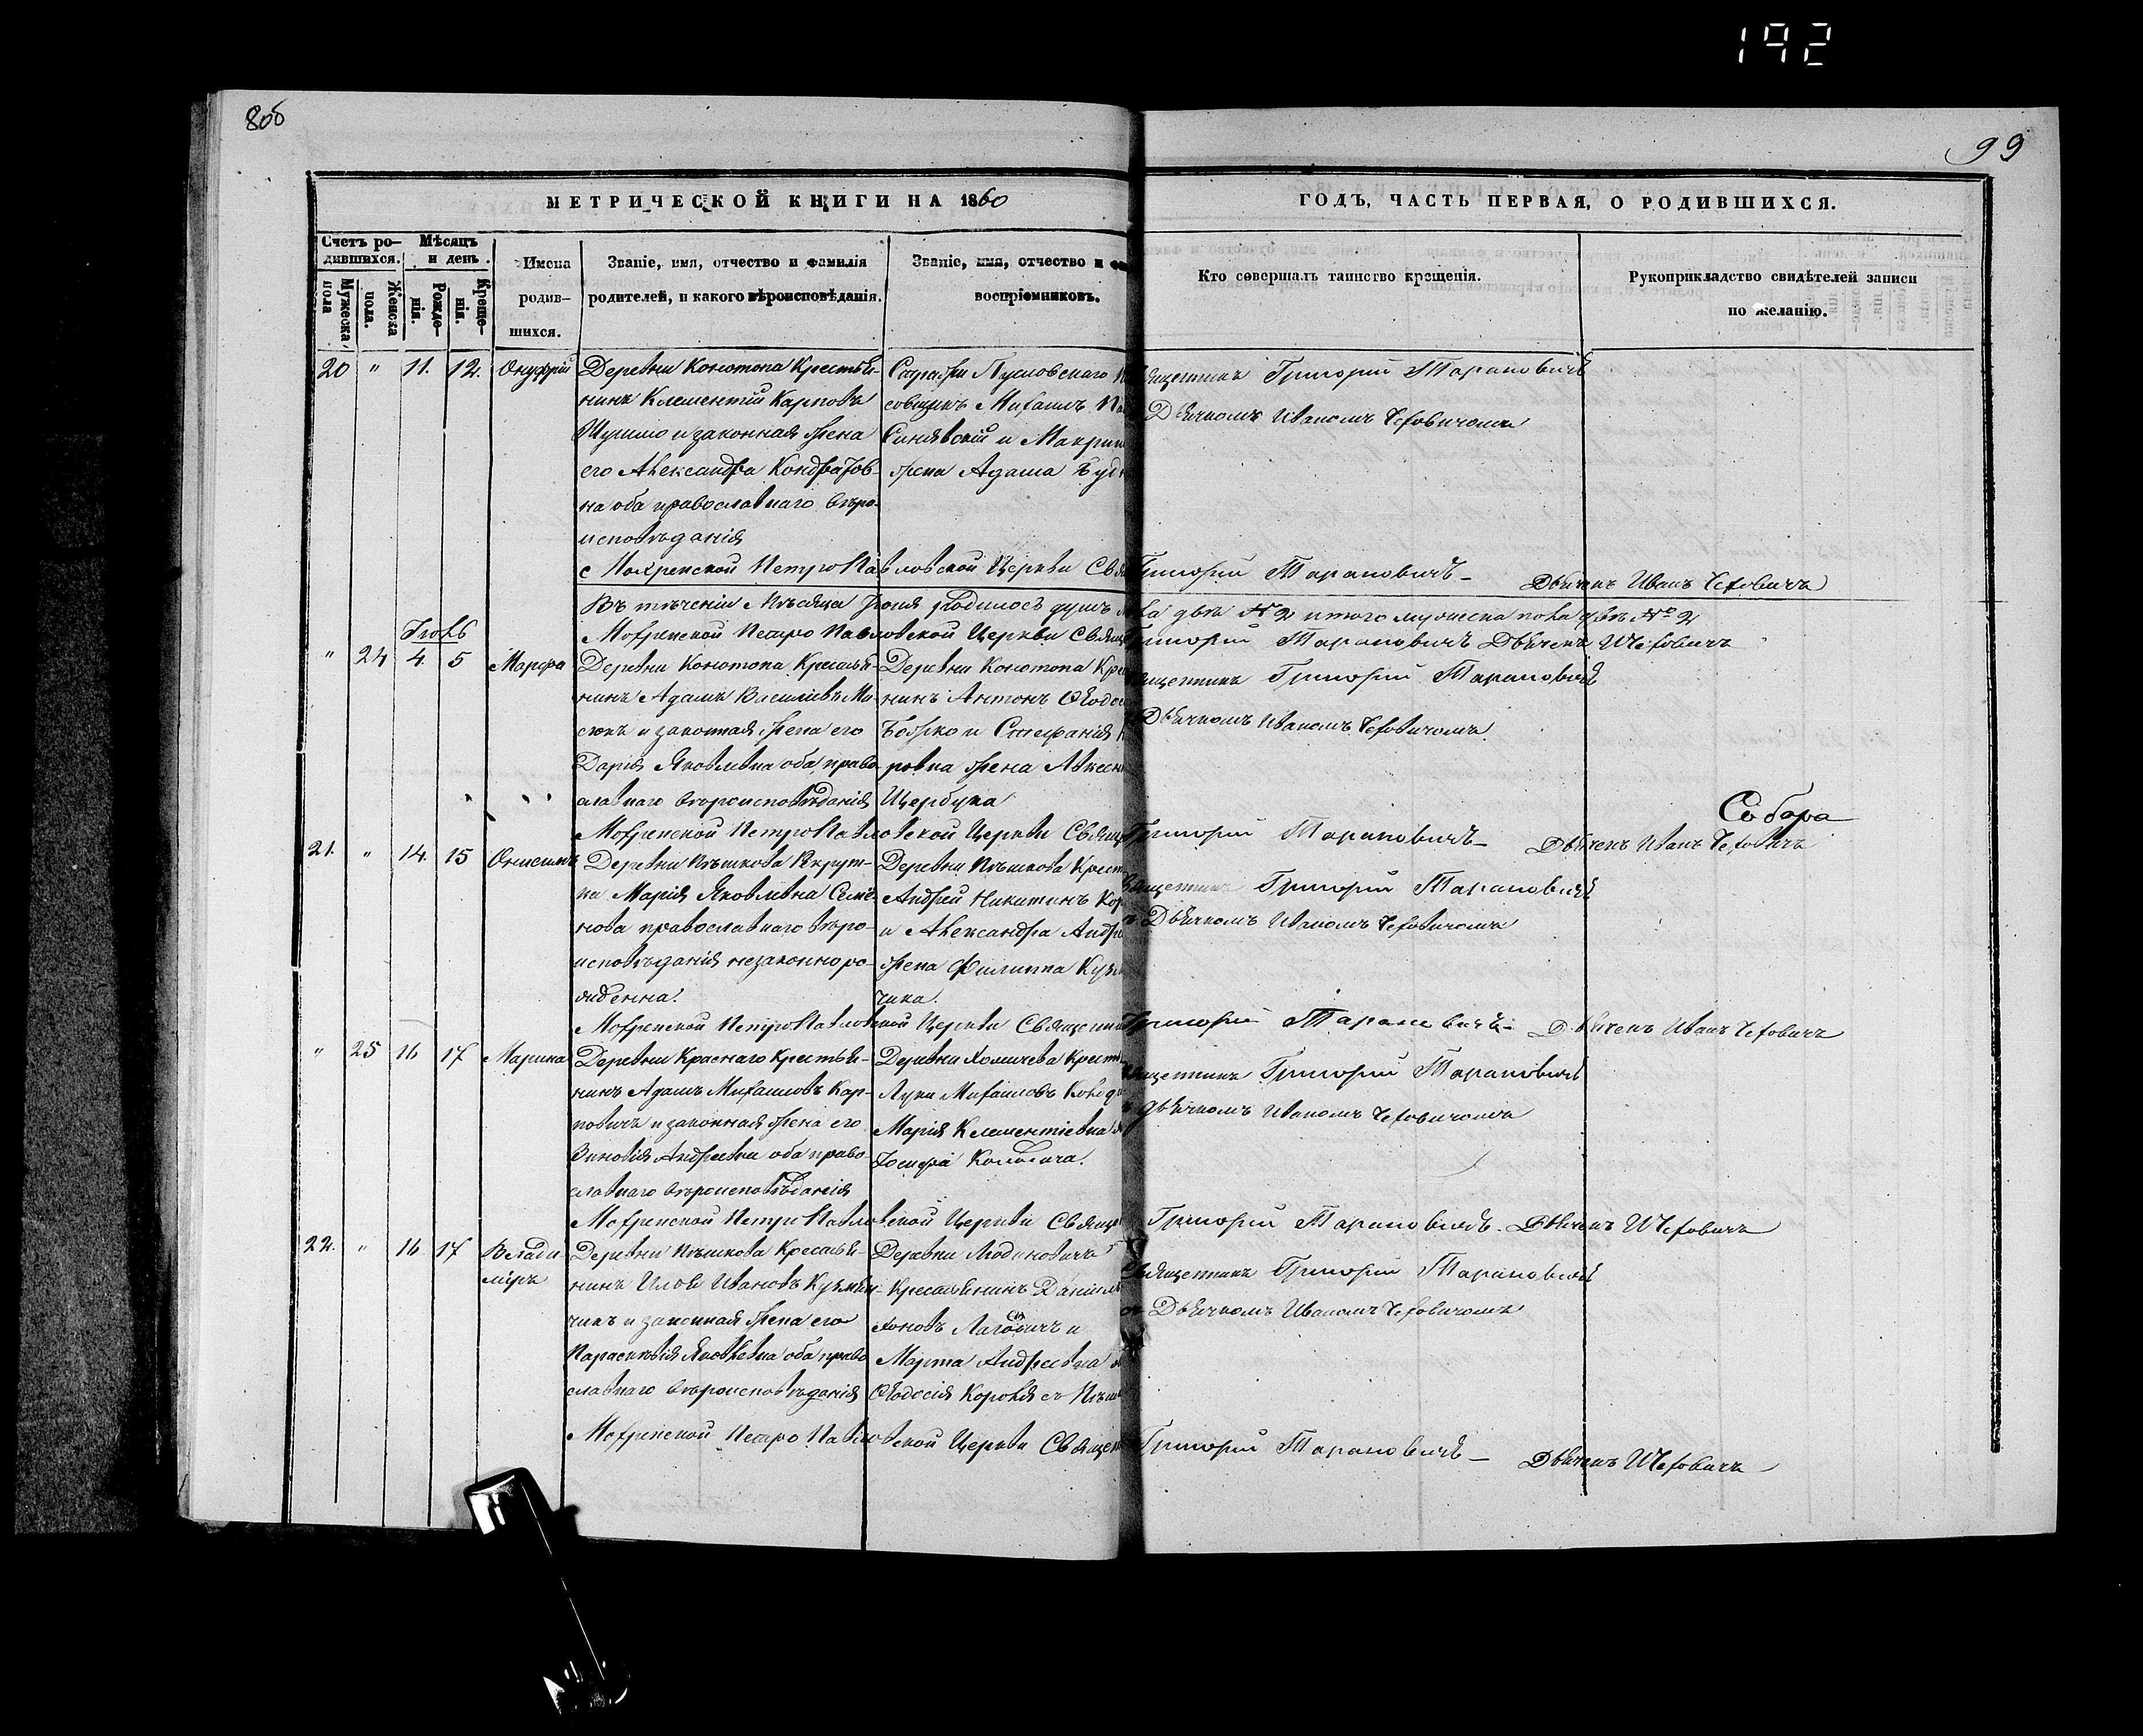 192
806
99
МЕТРИЧЕСКОЙ КНИГИ НА 1860
ГОДЪ, ЧАСТЬ ПЕРВАЯ, О РОДИВШИХСЯ.
Счетъ ро-
дившихся.
Мужеска
пола
Женска
пола.
Мѣсяцъ
и день.
Рожде-
нія.
Креще-
нія.
Имена
родив-
шихся.
Званіе, имя, отчество и фамилія
родителей, и какого вѣроисповѣданія.
Званіе, имя, отчество и
воспріемниковъ.
Кто совершалъ таинство крещенія.
Рукоприкладство свидѣтелей записи
по желанію.
20 " 11. 12. Онуфрій
Деревни Конотопа Крестья-
нинъ Клементій Карповъ
и законная жена
его Александра Кондратов-
на оба православнаго вѣро-
исповѣданія
Пусловскаго
Михаилъ
Синявскій и Макрин
жена Адама
Григорій Тарановичъ
Дьячкомъ Иваномъ Чеховичомъ
Петро Павловской Церкви Свя Григорій Тарановичъ - Дьячекъ Иванъ Чеховичъ
Въ теченіи Мѣсяца Іюня родилось душъ два № 2 итого мужеска пола два № 2
Мохренской Петро Павловской Церкви Свящ Григорій Тарановичъ Дьячекъ И Чеховичъ
Іюль
" 24 4 5 Марфа
Деревни Конотопа Крестья-
нинъ Адамъ Василіевъ Ми-
сюкъ и законная жена его
Дарія Яковлевна оба право-
славнаго вѣроисповѣданія
Деревни Конотопа Кре
нинъ Антонъ Ѳеодос
Божко и Стефанія
ровна жена Алексѣ
Щербука
Григорій Тарановичъ
Дьячкомъ Иваномъ Чеховичомъ
Собора
Мохренской Петро Павловской Церкви Свящ Григорій Тарановичъ - Дьячекъ Иванъ Чеховичъ
21. " 14. 15 Онисимъ
Деревни Мѣшкова Рекрут-
ка Марія Яковлевна Семе-
нова православнаго вѣро-
исповѣданія незаконноро-
жденна.
Деревни Мѣшкова Крест
Андрей Никитинъ Кор
и Александра Андре
жена Филиппа Кузь
чика.
Григорій Тарановичъ
съ Дьячкомъ Иваномъ Чеховичомъ
Мохренской Петро Павловской Церкви Священни Григорій Тарановичъ - Дьячекъ Иванъ Чеховичъ
" 25 16 17 Марина
Деревни Краснаго Крестья-
нинъ Адамъ Михаиловъ Кар-
повичъ и законная жена его
Зиновія Андреевна оба право-
славнаго вѣроисповѣданія
Деревни Хомичева Крест
Лука Михаиловъ
Марія Клементіевна
Іосифа
Григорій Тарановичъ
Дьячкомъ Иваномъ Чеховичомъ
Мохренской Петро Павловской Церкви Свяще Григорій Тарановичъ. Дьячекъ И Чеховичъ
22. " 16. 17 Влади
міръ
Деревни Мѣшкова Крестья-
нинъ Ивановъ Кузьми-
чикъ и законная жена его
Параскевія Яковлевна оба право
славнаго вѣроисповѣданія
Деревни
Крестьянинъ Даніилъ
и
Марта Андреевна
Ѳеодосія Коровая съ Мѣш
Священникъ Григорій Тарановичъ
съ Дьячкомъ Иваномъ Чеховичомъ
Мохренской Петро Павловской Церкви Священ Григорій Тарановичъ - Дьячекъ И Чеховичъ